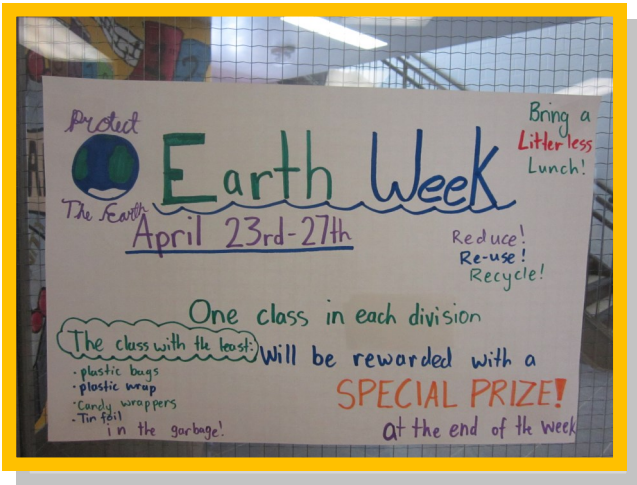 Protect
The Earth
Earth Week
April 23rd-27th
Bring a
Litterless
Lunch!
Reduce!
Re-use!
Recycle!
One class in each division
The class with the least:
· plastic bags
· plastic wrap
· Candy wrappers
· Tin foil
in the garbage!
Will be rewarded with a
SPECIAL PRIZE!
at the end of the week